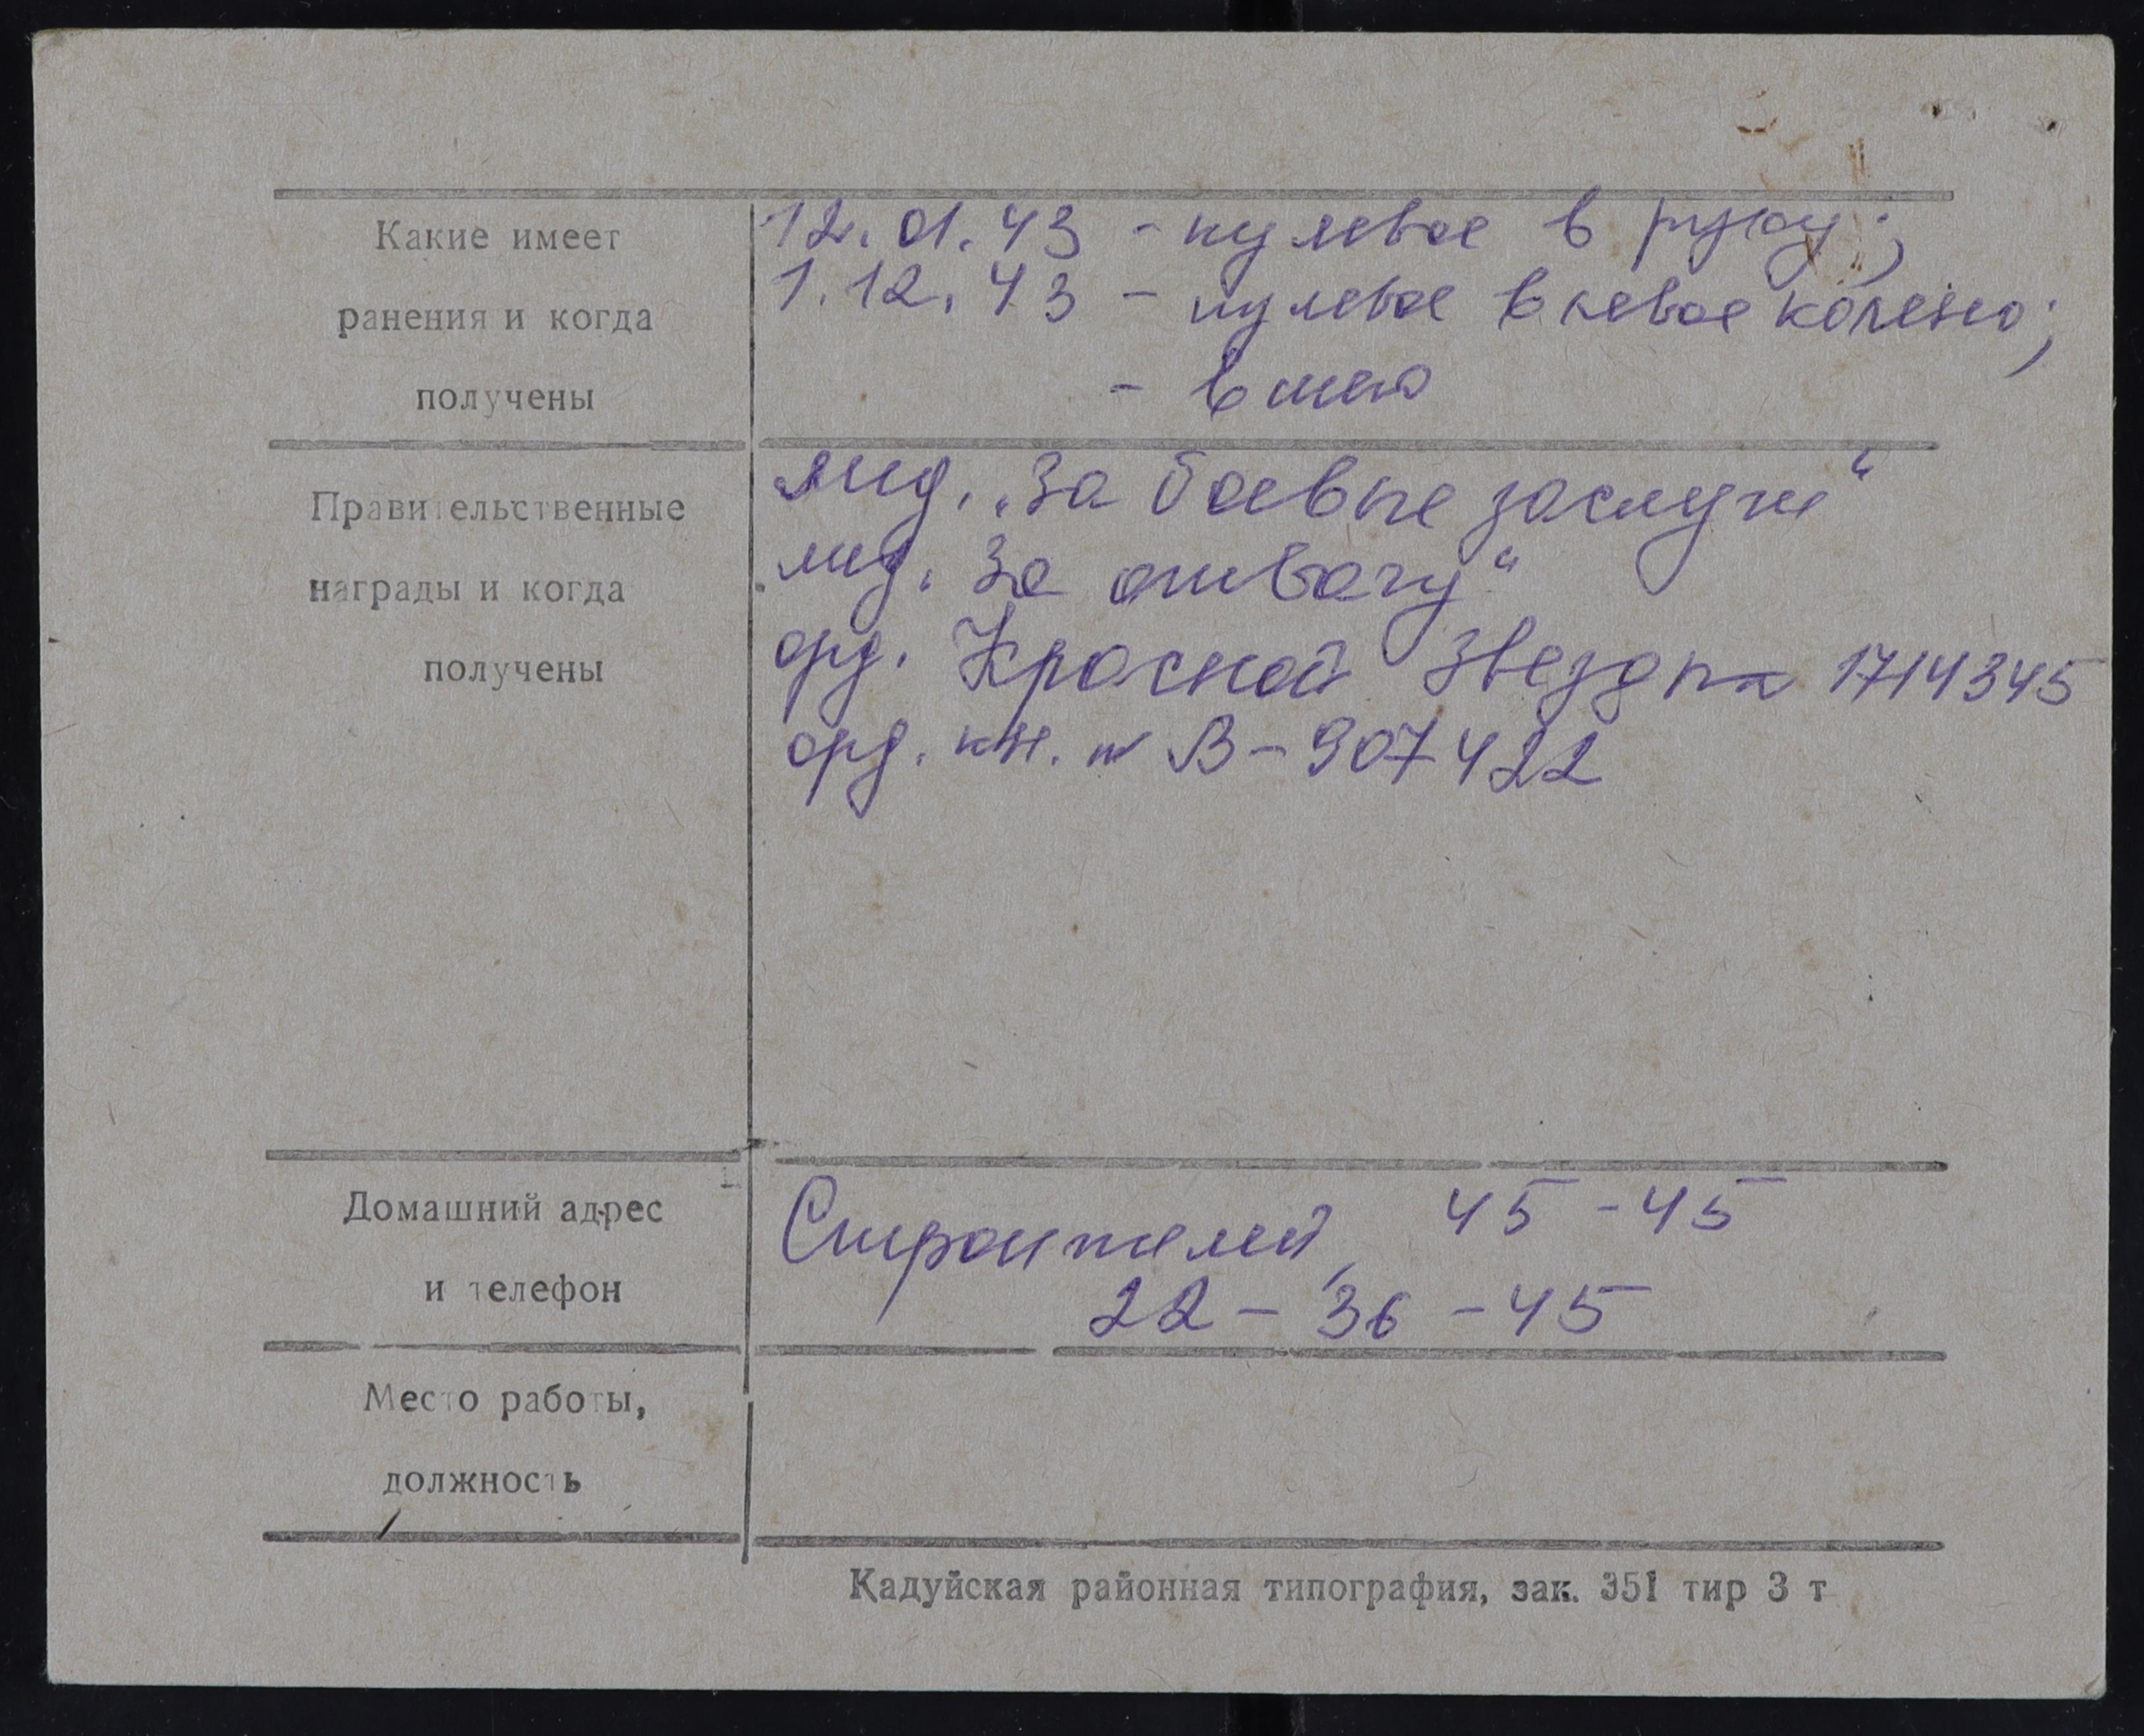 Какие имеет
ранения и когда
получены
12.01.43 - пулевое в руку;
1.12.43 - пулевое в левое колено;
- в шею
Правительственные
награды и когда
получены
мед. „За боевые заслуги“
мед. За отвагу“
орд. Красной Звезды 1714345
орд. кн. № В-907422
Домашний адрес
и телефон
Строителей, 45-45
22-36-45
Место работы,
должность
Кадуйская районная типография, зак. 351 тир 3 т